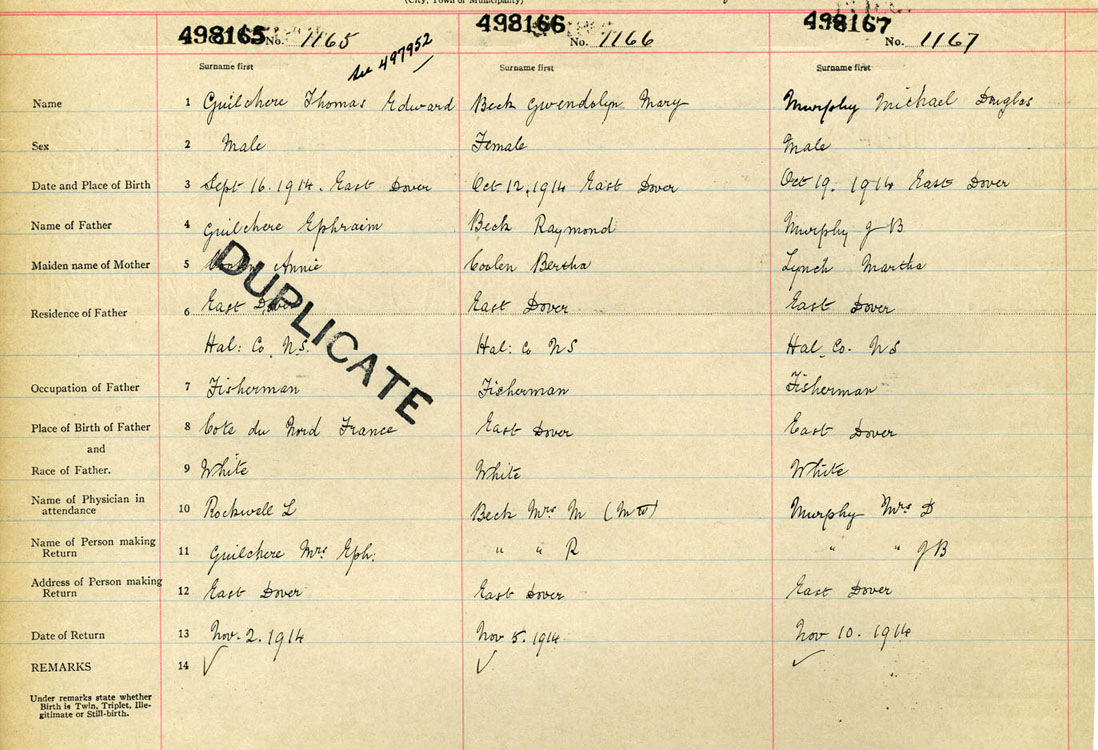 (City, Town or Municipality)
498165 No. 1165 498166 No. 1166 498167 No. 1167
See 497952
Surname first Surname first Surname first
Name 1 Guilchere Thomas Edward Beck Gwendolyn Mary Murphy Michael Douglas
Sex 2 Male Female Male
Date and Place of Birth 3 Sept 16. 1914. East Dover Oct 12, 1914 East Dover Oct 19. 1914 East Dover
Name of Father 4 Guilchere Ephraim Beck Raymond Murphy J B
Maiden name of Mother 5 Annie Coolen Bertha Lynch Martha
Residence of Father 6 East Dover East Dover East Dover
Hal: Co. N.S. Hal: Co N S Hal. Co. N S
DUPLICATE
Occupation of Father 7 Fisherman Fisherman Fisherman
Place of Birth of Father 8 Cote du Nord France East Dover East Dover
and
Race of Father. 9 White White White
Name of Physician in attendance 10 Rockwell L Beck Mrs M (MW) Murphy Mrs D
Name of Person making Return 11 Guilchere Mrs Eph: " " R " " J B
Address of Person making Return 12 East Dover East Dover East Dover
Date of Return 13 Nov. 2. 1914 Nov 5. 1914 Nov 10. 1914
REMARKS 14 ✓ ✓ ✓
Under remarks state whether
Birth is Twin, Triplet, Ille-
gitimate or Still-birth.